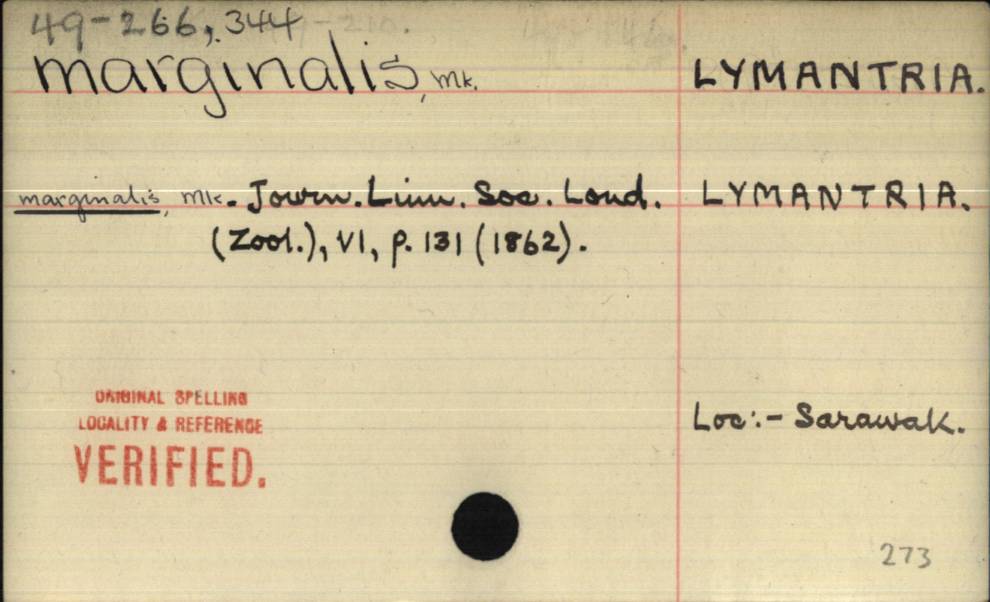 49-266, 344
marginalis, Mk. LYMANTRIA.
marginalis, Mk. Journ. Linn. Soc. Lond. LYMANTRIA.
(Zool.), VI, p. 131 (1862).
ORIGINAL SPELLING
LOCALITY & REFERENCE
VERIFIED.
Loc:- Sarawak.
273